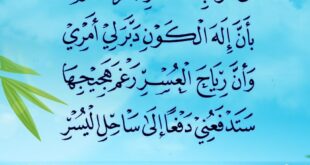 بِأَنَّ إِلَهَ الْكَوْنِ دَبَّرَ لِي أَمْرِي
وَأَنَّ رِيَاحَ الْعُسْرِ رَغْمَ هَجِيجِهَا
سَتَدْفَعُنِي دَفْعًا إِلَى سَاحِلِ الْيُسْرِ